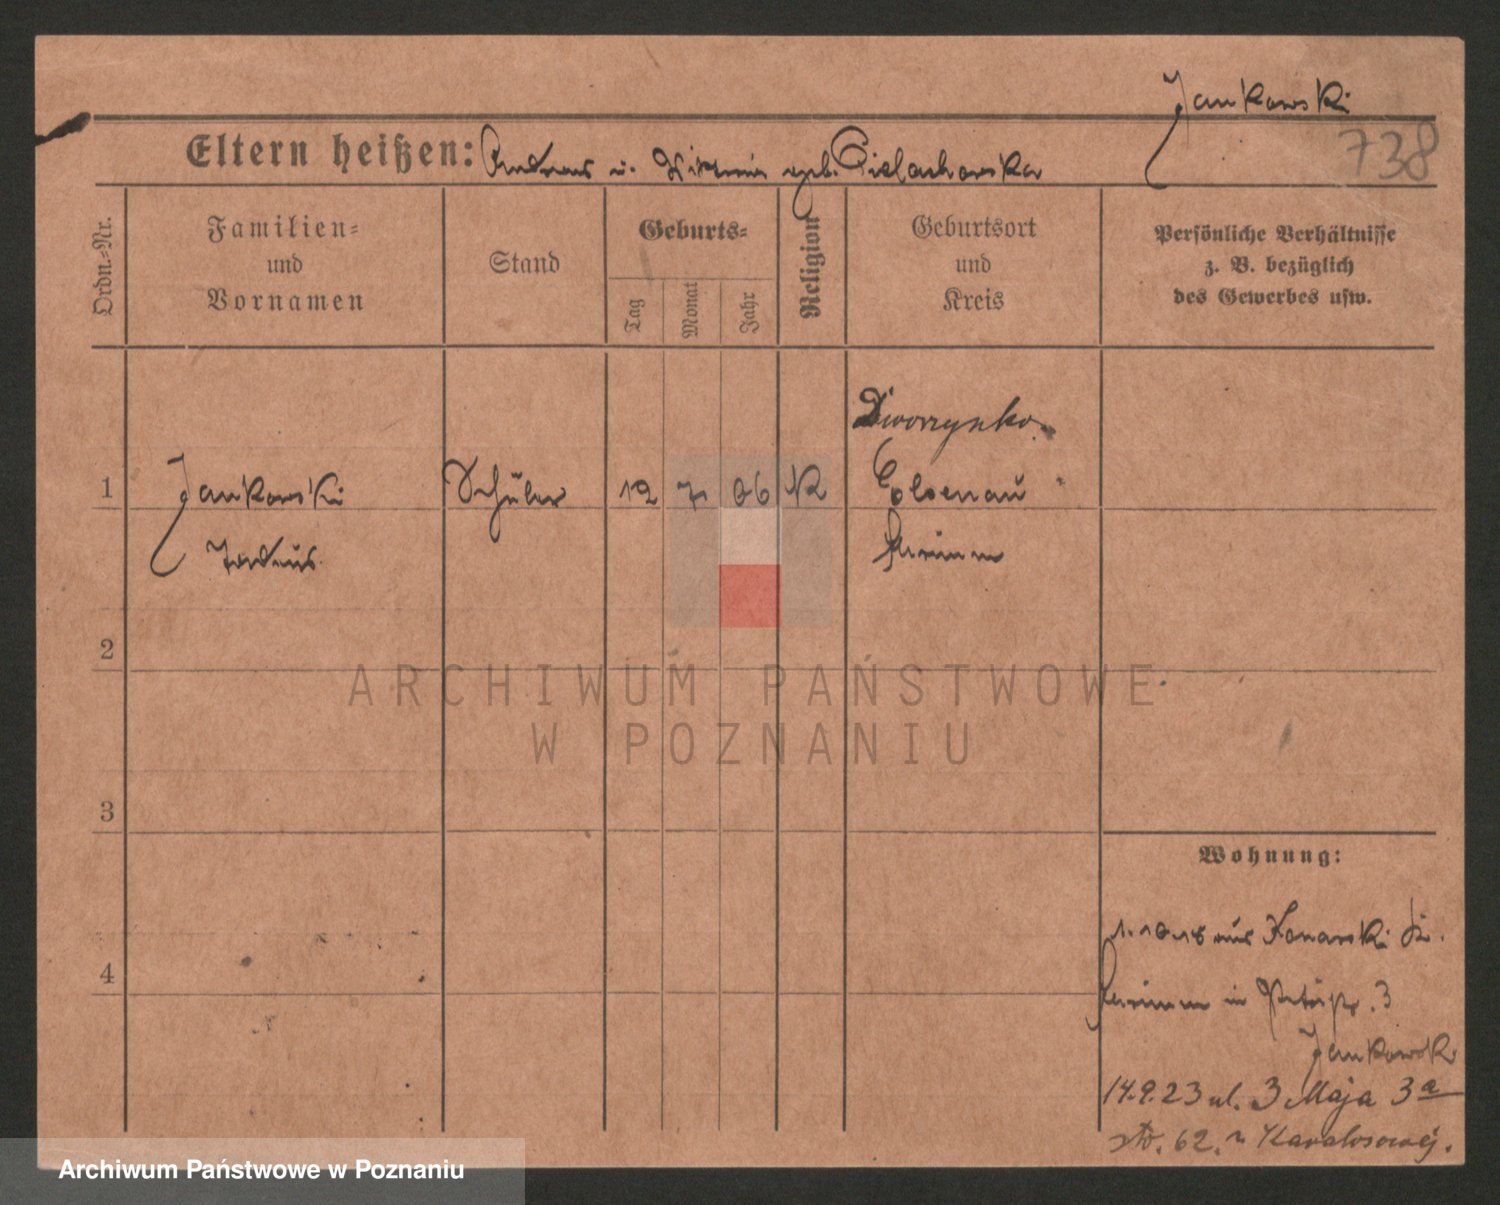 Jankowski
738
Eltern heißen: Andreas u. geb. Cielochowska
Ordn.-Nr.
Familien-
und
Vornamen
Stand
Geburts-
Tag
Monat
Jahr
Religion
Geburtsort
und
Kreis
Persönliche Verhältnisse
z. B. bezüglich
des Gewerbes usw.
Dworzynko
1
Jankowski
Schüler
12
7
06
K
Elsenau
Schrimm
2
3
4
Wohnung:
1.10.18 aus Konarski
Schrimm in 3
Jankowski
14.9.23 ul. 3 Maja 3a
62.
ARCHIWUM PAŃSTWOWE
W POZNANIU
Archiwum Państwowe w Poznaniu